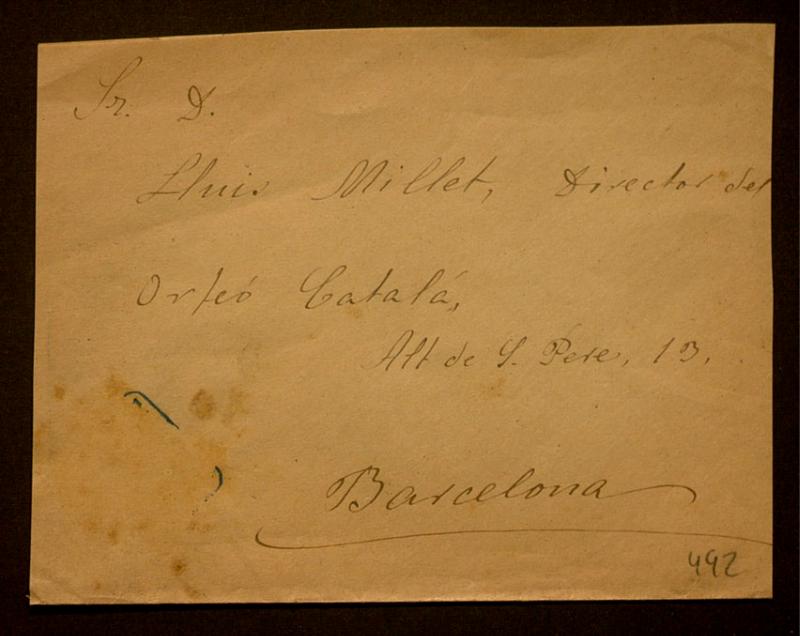 Sr. D.
Lluis Millet, Director del
Orfeó Catalá,
Alt de S. Pere, 13.
Barcelona
492